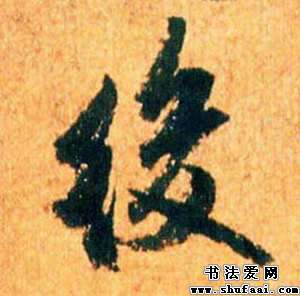 後
书法爱网
www.shufaai.com